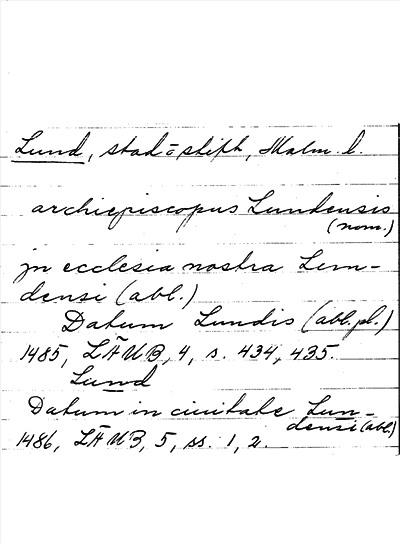 Lund, stad o stift, Malm. l.
archiepiscopus Lundensis
(nom.)
jn ecclesia nostra Lun-
densi (abl.)
Datum Lundis (abl. pl.)
1485, LÄUB, 4, s. 434, 435.
Lund
Datum in ciuitate Lun-
densi (abl.)
1486, LÄUB, 5, ss. 1, 2.